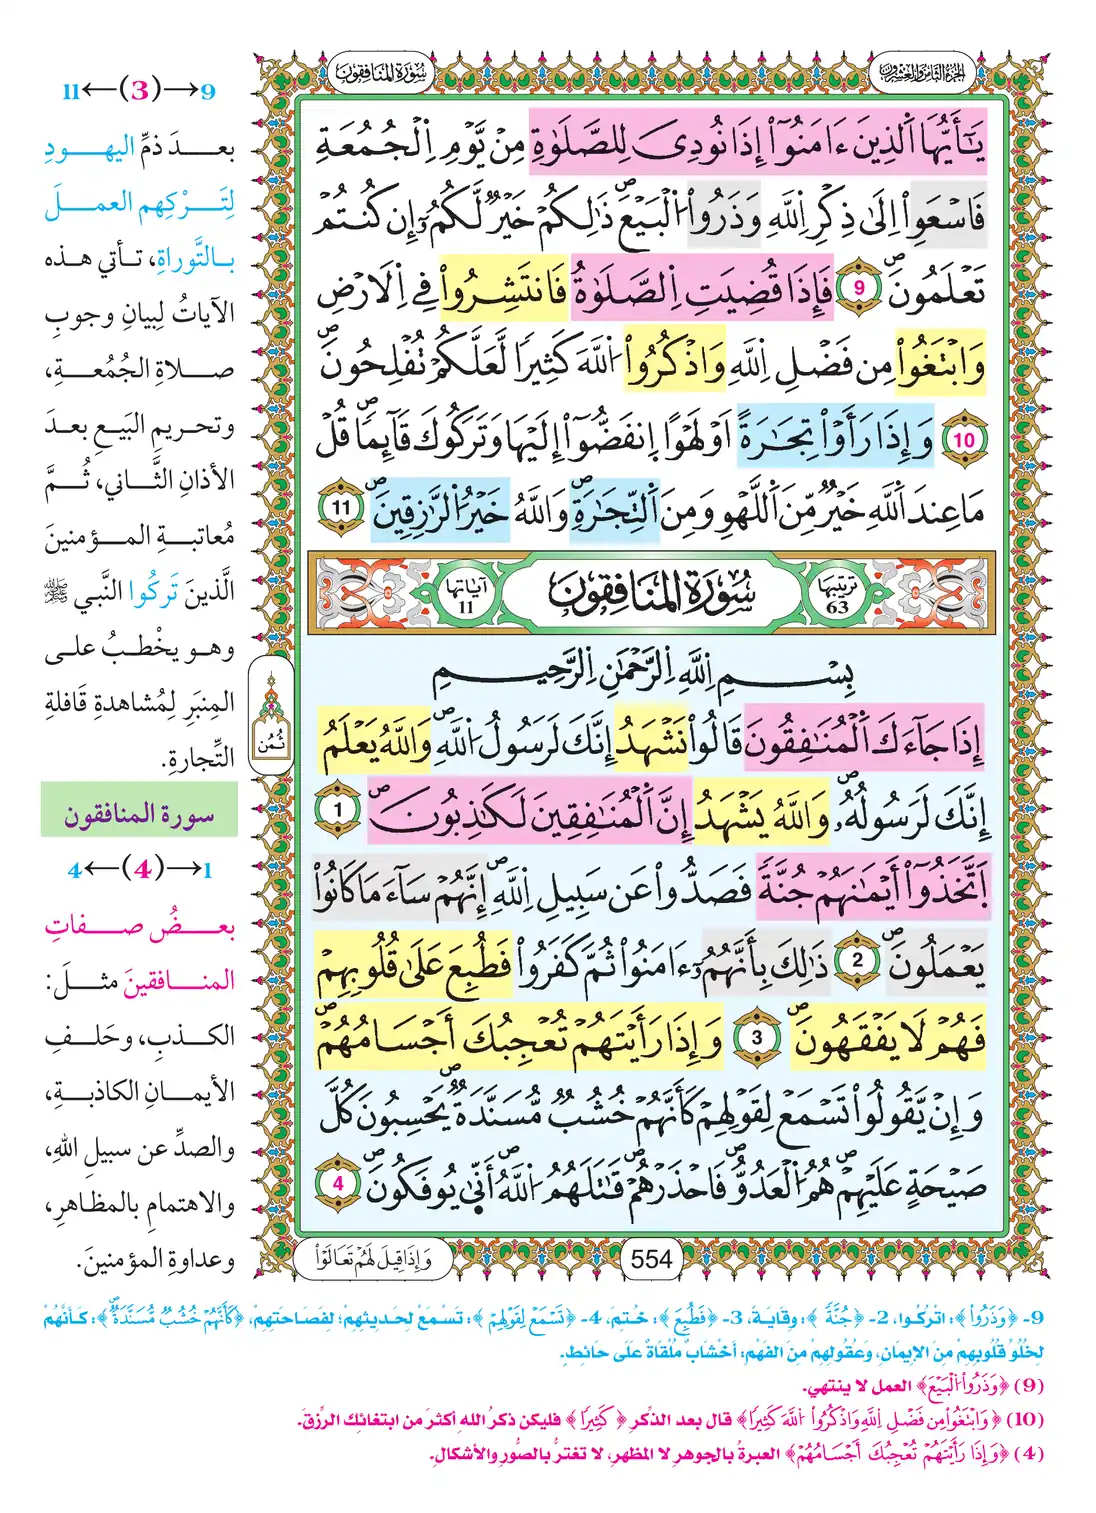 الجزء الثامن والعشرون
سورة المنافقون
يَٰٓأَيُّهَا اَ۬لذِينَ ءَامَنُوٓاْ إِذَا نُودِيَ لِلصَّلَوٰةِ مِنْ يَّوْمِ اِ۬لْجُمُعَةِ
فَاسْعَوِاْ اِلَىٰ ذِكْرِ اِ۬للَّهِ وَذَرُواْ اُ۬لْبَيْعَۖ ذَٰلِكُمْ خَيْرٞ لَّكُمُۥٓ إِن كُنتُمْ
تَعْلَمُونَۖ 9 فَإِذَا قُضِيَتِ اِ۬لصَّلَوٰةُ فَانتَشِرُواْ فِے اِ۬لَارْضِ
وَابْتَغُواْ مِن فَضْلِ اِ۬للَّهِ وَاذْكُرُواْ اُ۬للَّهَ كَثِيراٗ لَّعَلَّكُمْ تُفْلِحُونَۖ
10 وَإِذَا رَأَوْاْ تِجَٰرَةً اَوْ لَهْواً اِ۪نفَضُّوٓاْ إِلَيْهَا وَتَرَكُوكَ قَآئِماٗۖ قُلْ
مَا عِندَ اَ۬للَّهِ خَيْرٞ مِّنَ اَ۬للَّهْوِ وَمِنَ اَ۬لتِّجَٰرَةِۖ وَاللَّهُ خَيْرُ اُ۬لرَّٰزِقِينَۖ 11
ترتيبها 63
سُورَةُ المنَافِقُون
آياتها 11
بِسْمِ اِ۬للَّهِ اِ۬لرَّحْمَٰنِ اِ۬لرَّحِيمِ
إِذَا جَآءَكَ اَ۬لْمُنَٰفِقُونَ قَالُواْ نَشْهَدُ إِنَّكَ لَرَسُولُ اُ۬للَّهِۖ وَاللَّهُ يَعْلَمُ
إِنَّكَ لَرَسُولُهُۥۖ وَاللَّهُ يَشْهَدُ إِنَّ اَ۬لْمُنَٰفِقِينَ لَكَٰذِبُونَۖ 1
اَ۪تَّخَذُوٓاْ أَيْمَٰنَهُمْ جُنَّةٗ فَصَدُّواْ عَن سَبِيلِ اِ۬للَّهِۖ إِنَّهُمْ سَآءَ مَا كَانُواْ
يَعْمَلُونَۖ 2 ذَٰلِكَ بِأَنَّهُمُۥٓ ءَامَنُواْ ثُمَّ كَفَرُواْ فَطُبِعَ عَلَىٰ قُلُوبِهِمْ
فَهُمْ لَا يَفْقَهُونَۖ 3 وَإِذَا رَأَيْتَهُمْ تُعْجِبُكَ أَجْسَامُهُمْۖ
وَإِنْ يَّقُولُواْ تَسْمَعْ لِقَوْلِهِمْ كَأَنَّهُمْ خُشُبٞ مُّسَنَّدَةٞۖ يَحْسِبُونَ كُلَّ
صَيْحَةٍ عَلَيْهِمْۖ هُمُ اُ۬لْعَدُوُّ فَاحْذَرْهُمْۖ قَٰتَلَهُمُ اُ۬للَّهُ أَنَّىٰ يُوفَكُونَۖ 4
وَإِذَا قِيلَ لَهُمْ تَعَالَوْاْ
554
ثُمُن
9→(3)←11
بعدَ ذمِّ اليهودِ
لِتَرْكِهم العملَ
بالتَّوراةِ، تأتي هذه
الآياتُ لِبيانِ وجوبِ
صلاةِ الجُمُعةِ،
وتحريمِ البَيعِ بعدَ
الأذانِ الثَّاني، ثُمَّ
مُعاتبةِ المؤمنينَ
الَّذينَ تَركُوا النَّبي ﷺ
وهو يخْطبُ على
المِنبَرِ لِمُشاهدةِ قَافلةِ
التِّجارةِ.
سورة المنافقون
1→(4)←4
بعضُ صفاتِ
المنافقينَ مثلَ:
الكذبِ، وحَلفِ
الأيمانِ الكاذبةِ،
والصدِّ عن سبيلِ اللهِ،
والاهتمامِ بالمظاهرِ،
وعداوةِ المؤمنينَ.
9- ﴿وَذَرُواْ﴾: اتْركُوا، 2- ﴿جُنَّةٗ﴾: وِقَايَةً، 3- ﴿فَطُبِعَ﴾: خُتِمَ، 4- ﴿تَسْمَعْ لِقَوْلِهِمْ﴾: تَسمَعْ لِحَديثِهِمْ؛ لِفَصَاحَتِهِمْ، ﴿كَأَنَّهُمْ خُشُبٞ مُّسَنَّدَةٞۖ﴾: كَأنَّهُمْ
لِخُلُوِّ قُلُوبِهِمْ مِنَ الإيمَانِ، وَعُقُولِهِمْ مِنَ الفَهْمِ: أخْشَابٌ مُلْقَاةٌ عَلَى حَائِطٍ.
(9) ﴿وَذَرُواْ اُ۬لْبَيْعَ﴾ العمل لا ينتهي.
(10) ﴿وَابْتَغُواْ مِن فَضْلِ اِ۬للَّهِ وَاذْكُرُواْ اُ۬للَّهَ كَثِيراٗ﴾ قال بعد الذِّكرِ ﴿كَثِيراٗ﴾ فليكن ذكرُ الله أكثرَ من ابتغائِك الرِّزقَ.
(4) ﴿وَإِذَا رَأَيْتَهُمْ تُعْجِبُكَ أَجْسَامُهُمْ﴾ العبرةُ بالجوهرِ لا المظهرِ، لا تغترُّ بالصُّورِ والأشكالِ.